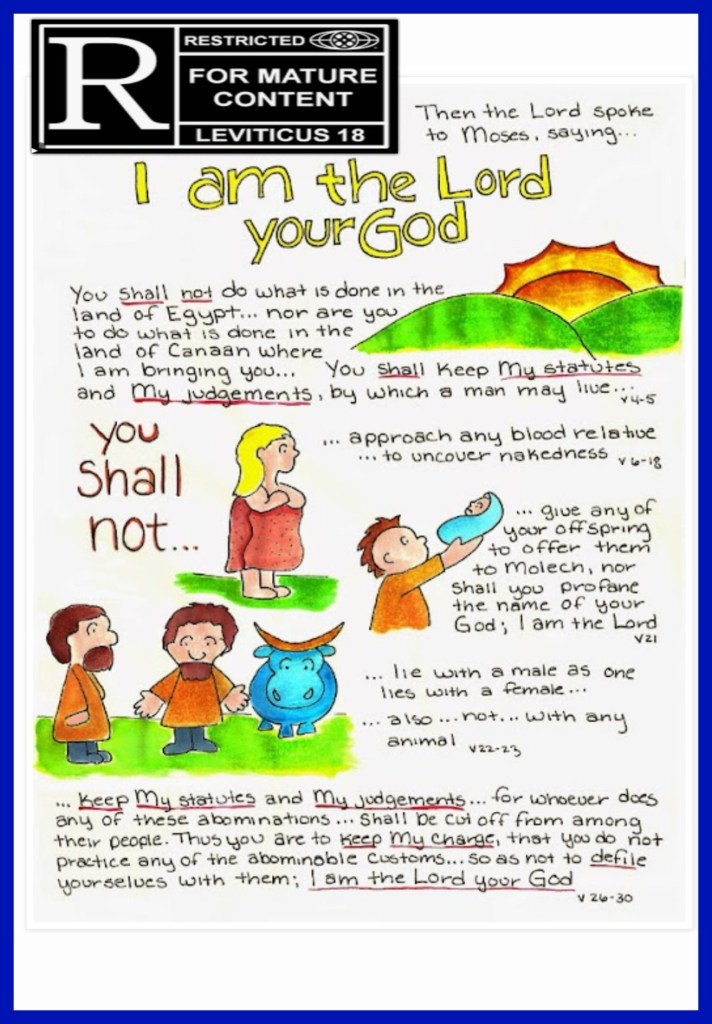 R
RESTRICTED
FOR MATURE
CONTENT
LEVITICUS 18
Then the Lord spoke
to Moses, saying...
I am the Lord
your God
You shall not do what is done in the
land of Egypt... nor are you
to do what is done in the
land of Canaan where
I am bringing you... You shall keep My statutes
and My judgements, by which a man may live...
v4-5
you
shall
not...
... approach any blood relative
... to uncover nakedness v 6-18
... give any of
your offspring
to offer them
to Molech, nor
shall you profane
the name of your
God; I am the Lord
v21
... lie with a male as one
lies with a female...
... also ... not... with any
animal v22-23
... keep My statutes and My judgements... for whoever does
any of these abominations... shall be cut off from among
their people. Thus you are to keep My charge, that you do not
practice any of the abominable customs... so as not to defile
yourselves with them; I am the Lord your God
v 26-30